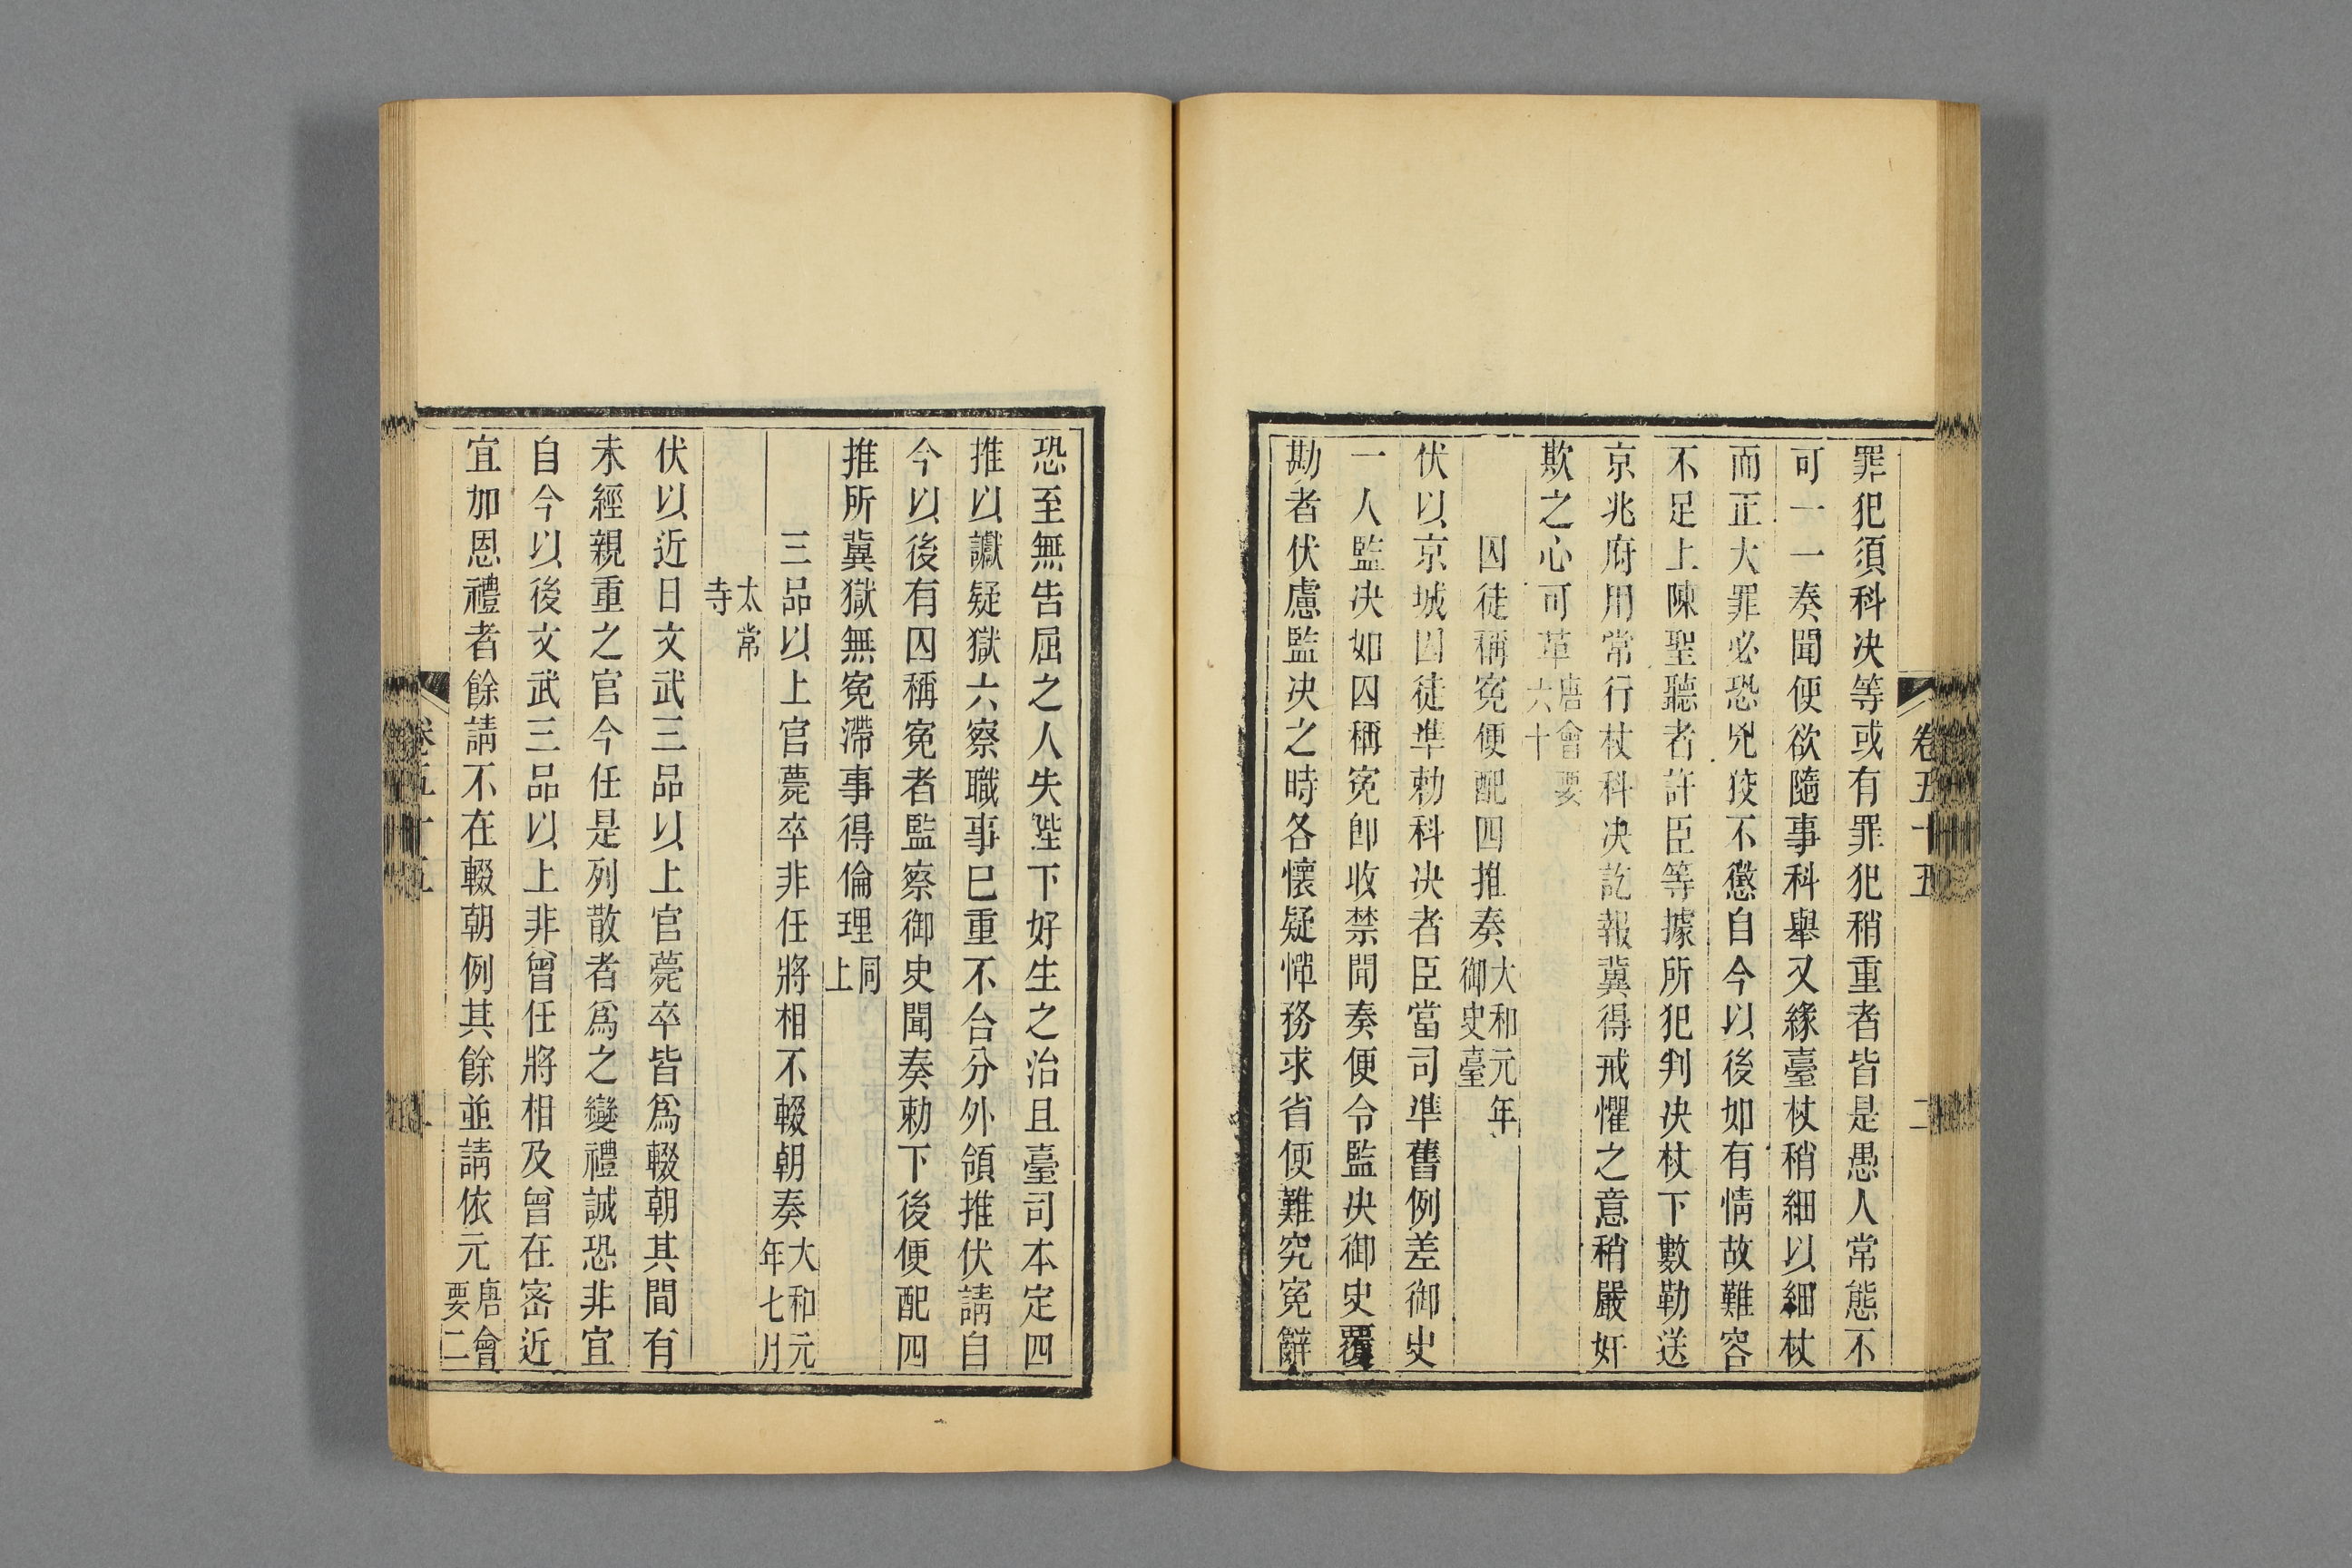 卷五十五 二
罪犯須科決等或有罪犯稍重者皆是愚人常態不
可一一奏聞便欲隨事科舉又緣臺杖稍細以細杖
而正大罪必恐兇狡不懲自今以後如有情故難容
不足上陳聖聽者許臣等據所犯判決杖下數勒送
京兆府用常行杖科決訖報冀得戒懼之意稍嚴奸
欺之心可革唐會要六十
囚徒稱寃便配四推奏大和元年御史臺
伏以京城囚徒準勅科決者臣當司準舊例差御史
一人監決如囚稱寃卽收禁聞奏便令監決御史覆
勘者伏慮監決之時各懷疑憚務求省便難究寃辭
恐至無告屈之人失陛下好生之治且臺司本定四
推以讞疑獄六察職事已重不合分外領推伏請自
今以後有囚稱寃者監察御史聞奏勅下後便配四
推所冀獄無寃滯事得倫理同上
三品以上官薨卒非任將相不輟朝奏大和元年七月
太常寺
伏以近日文武三品以上官薨卒皆爲輟朝其間有
未經親重之官今任是列散者爲之變禮誠恐非宜
自今以後文武三品以上非曾任將相及曾在密近
宜加恩禮者餘請不在輟朝例其餘並請依元唐會要二
卷五十五